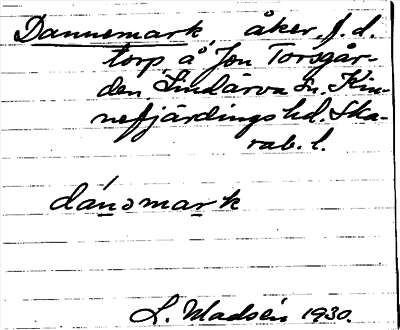 Dannemark, åker, f.d.
torp, å Jon Torsgår-
den, Lindärva sn. Kin-
nefjärdings hd. Ska-
rab. l.
dánəmark
L. Wadsén 1930.